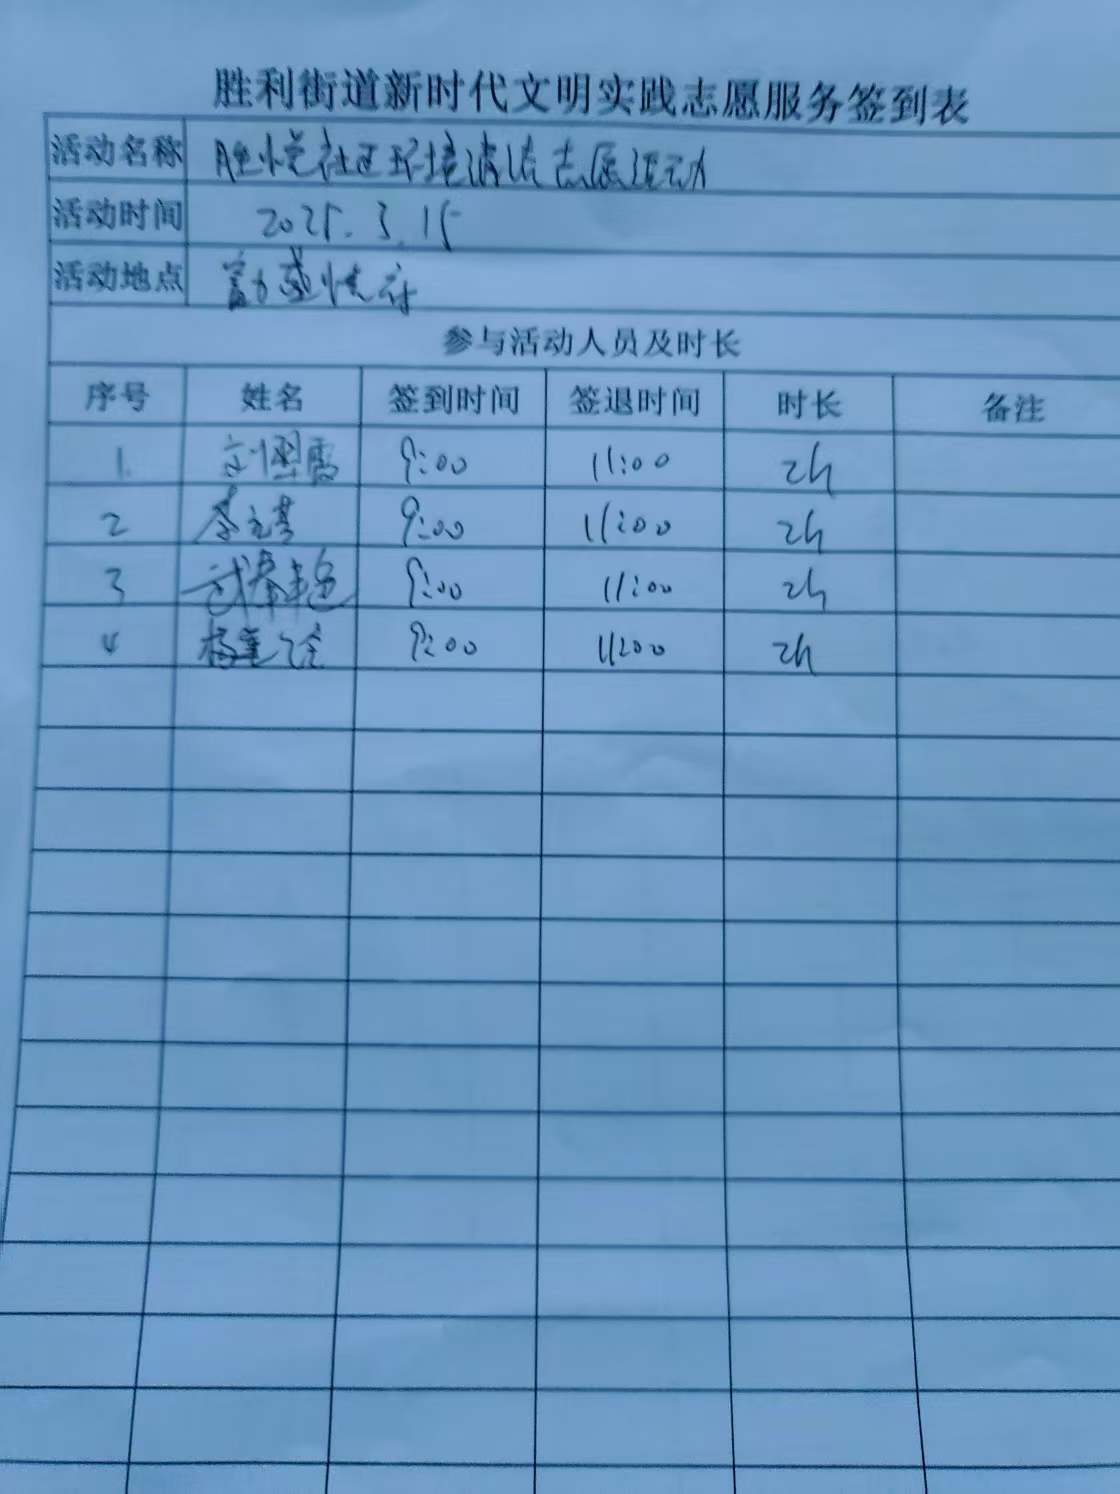 胜利街道新时代文明实践志愿服务签到表
活动名称 胜悦社区环境清洁志愿活动
活动时间 2025.3.15
活动地点 富力盛悦府
参与活动人员及时长
序号 姓名 签到时间 签退时间 时长 备注
1. 9:00 11:00 2h
2 9:00 11:00 2h
3 9:00 11:00 2h
4 9:00 11:00 2h